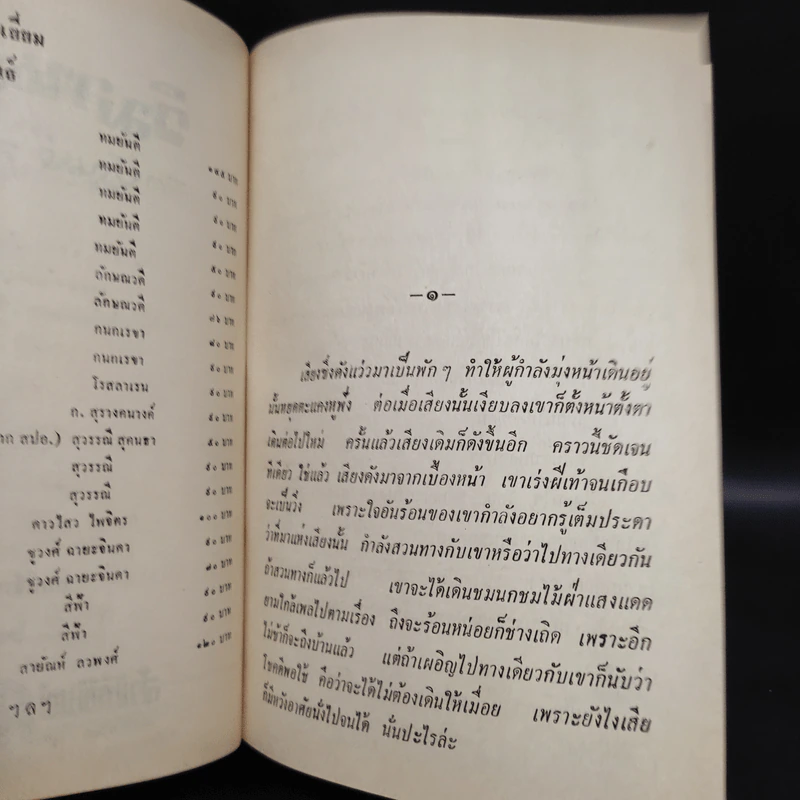 เลี่ยม
ทมยันตี
ทมยันตี ๑๙๕ บาท
ทมยันตี ๕๐ บาท
ทมยันตี ๕๐ บาท
ทมยันตี ๕๐ บาท
ลักษณวดี ๕๐ บาท
ลักษณวดี ๕๐ บาท
กนกเรขา ๗๖ บาท
กนกเรขา ๘๐ บาท
โรสลาเรน ๕๐ บาท
ก. สุรางคนางค์ ๕๐ บาท
สปอ.) สุวรรณี สุคนธา ๕๐ บาท
สุวรรณี ๕๐ บาท
สุวรรณี ๕๐ บาท
ดาวไสว ไพจิตร ๑๐๐ บาท
ชูวงศ์ ฉายะจินดา ๕๐ บาท
ชูวงศ์ ฉายะจินดา ๗๐ บาท
สีฟ้า ๕๐ บาท
สีฟ้า ๕๐ บาท
สายัณห์ ลวพงศ์ ๑๒๐ บาท
ๆลๆ
—๑—
เสียงซึ่งดังแว่วมาเป็นพัก ๆ ทำให้ผู้กำลังมุ่งหน้าเดินอยู่
นั้นหยุดตะแคงหูฟัง ต่อเมื่อเสียงนั้นเงียบลงเขาก็ตั้งหน้าตั้งตา
เดินต่อไปใหม่ ครั้นแล้วเสียงเดิมก็ดังขึ้นอีก คราวนี้ชัดเจน
ทีเดียว ใช่แล้ว เสียงดังมาจากเบื้องหน้า เขาเร่งฝีเท้าจนเกือบ
จะเป็นวิ่ง เพราะใจอันร้อนของเขากำลังอยากรู้เต็มประดา
ว่าที่มาแห่งเสียงนั้น กำลังสวนทางกับเขาหรือว่าไปทางเดียวกัน
ถ้าสวนทางก็แล้วไป เขาจะได้เดินชมนกชมไม้ฝ่าแสงแดด
ยามใกล้เพลไปตามเรื่อง ถึงจะร้อนหน่อยก็ช่างเถิด เพราะอีก
ไม่ช้าก็จะถึงบ้านแล้ว แต่ถ้าเผอิญไปทางเดียวกับเขาก็นับว่า
โชคดีพอใช้ คือว่าจะได้ไม่ต้องเดินให้เมื่อย เพราะยังไงเสีย
ก็มีหวังอาศัยนั่งไปจนได้ นั่นปะไรล่ะ